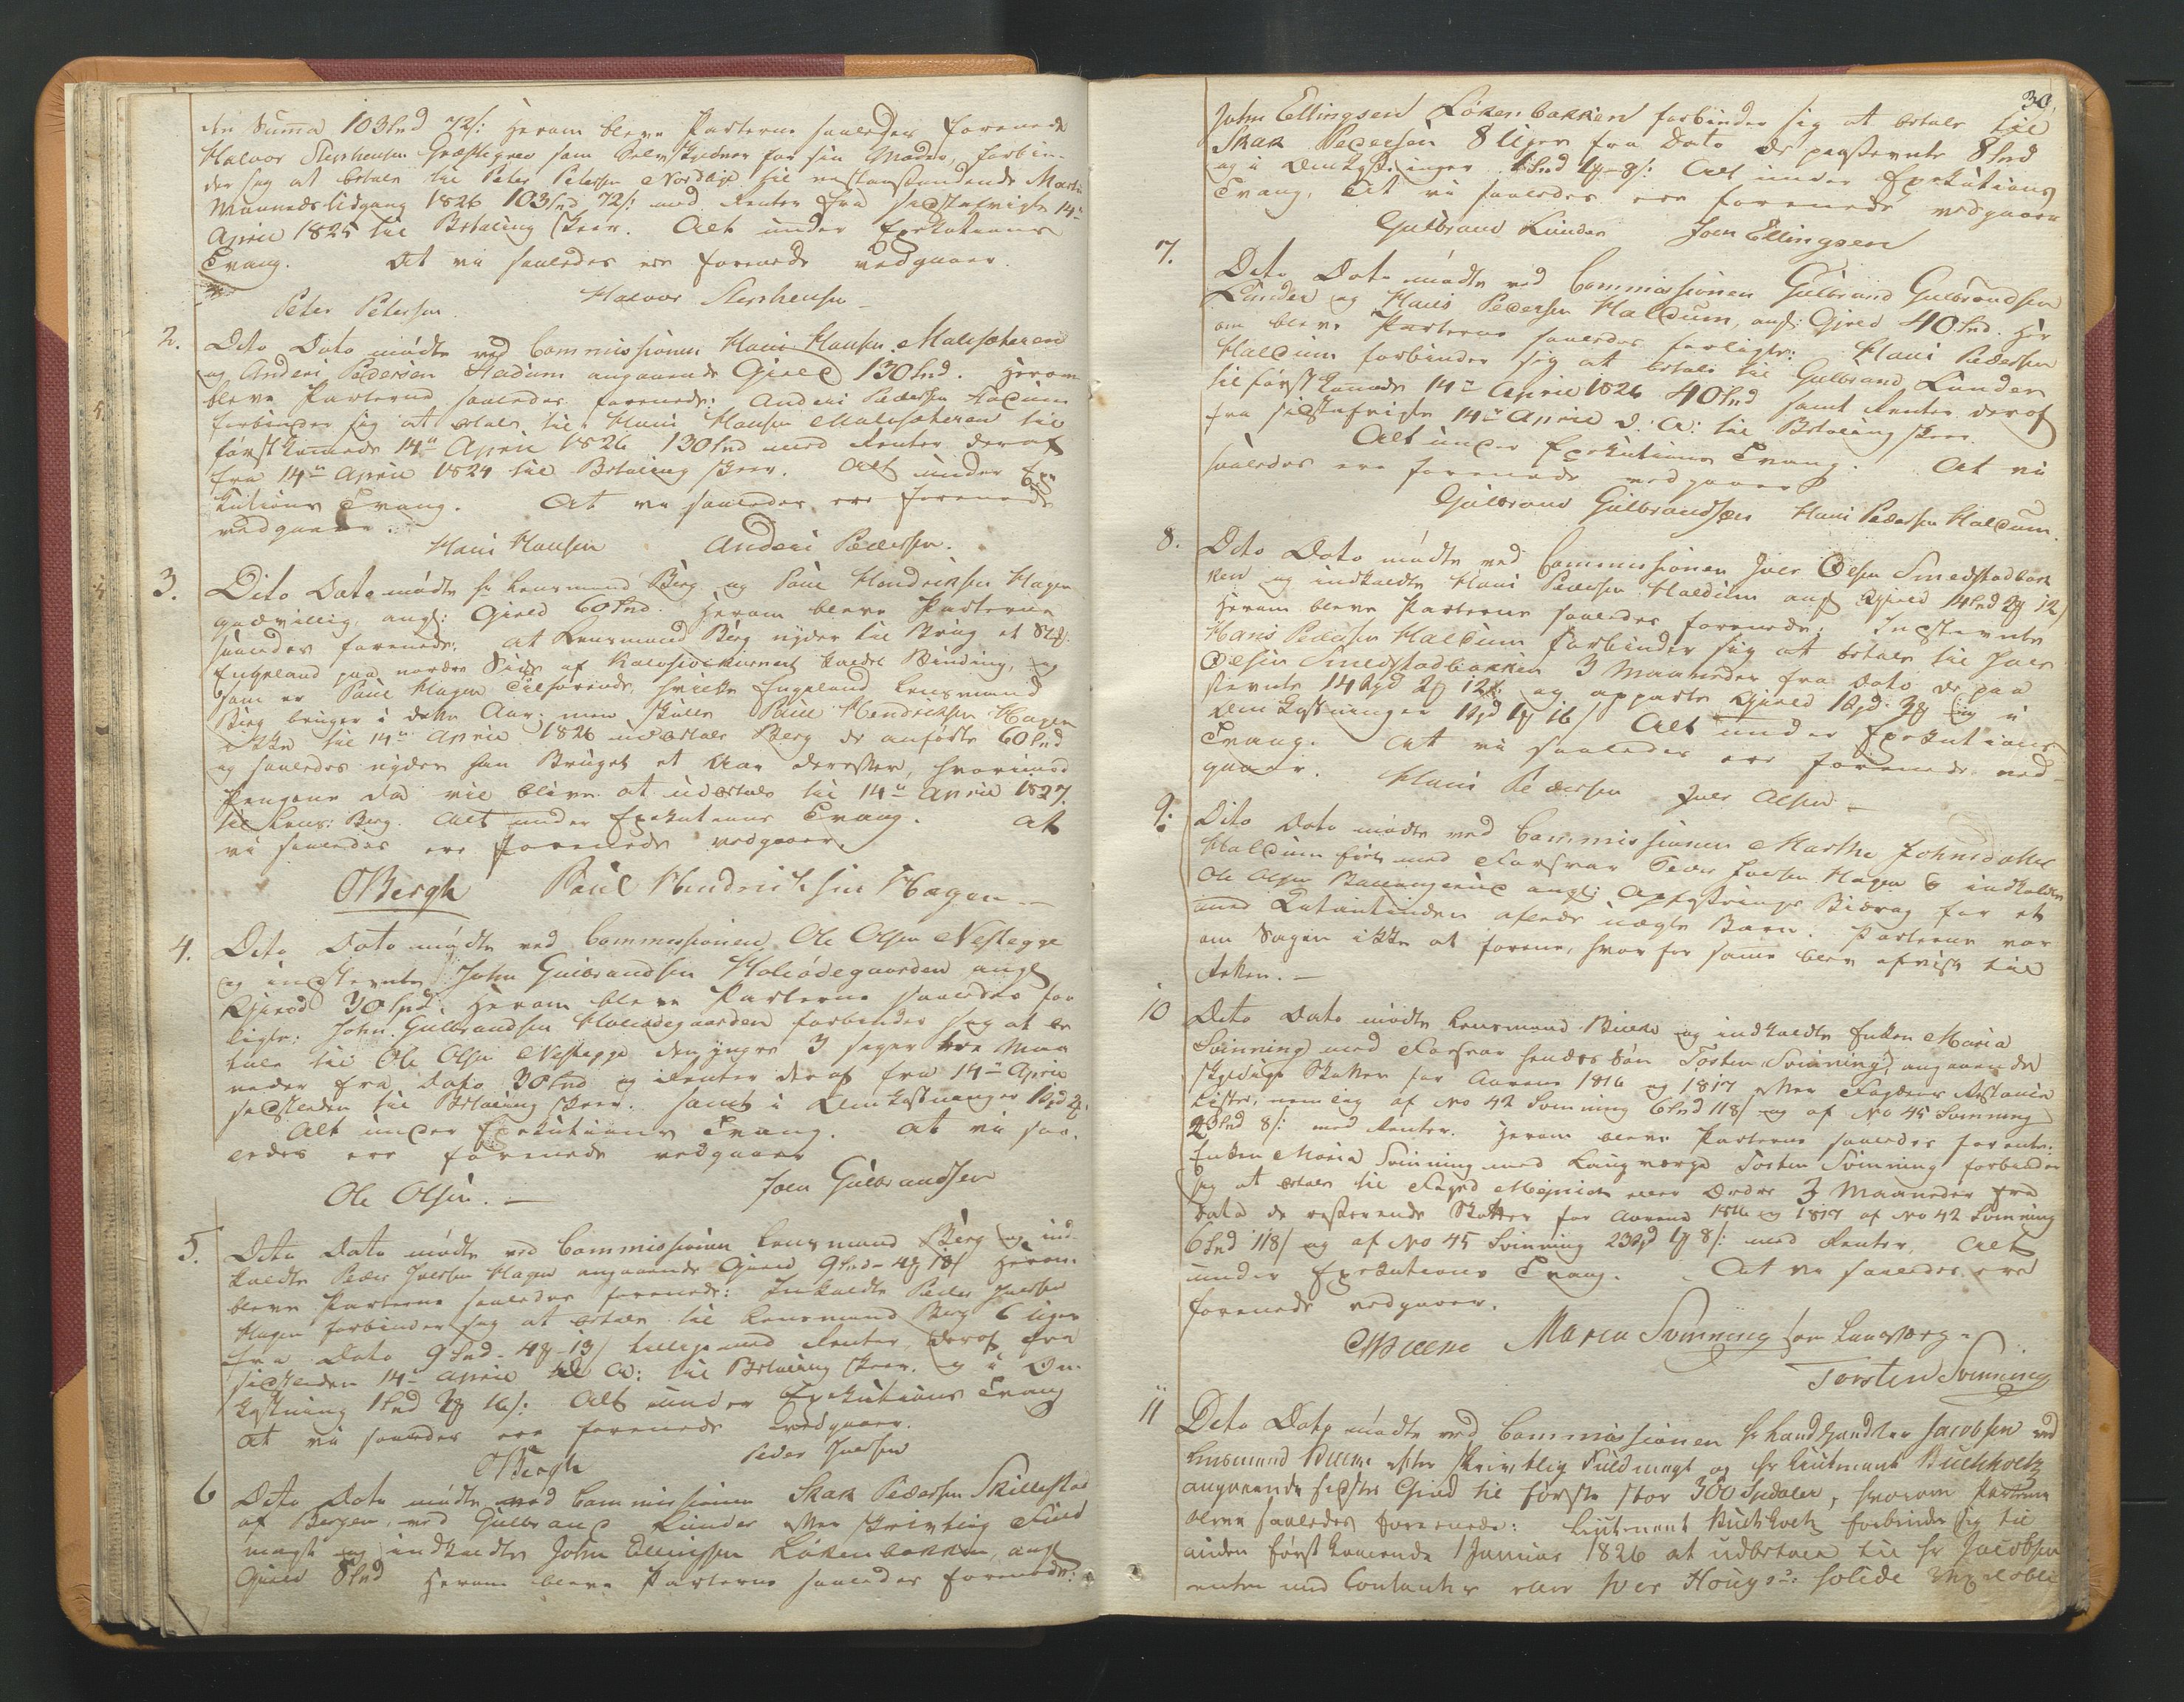 den Summa 103 Spd 72 s: Herom bleve Parterne saaledes forenede
Halvor Stephensen Græstegren som Selvskyldner for sin Moder, forbin-
der sig at betale til Peter Petersen Nordbye til nestanstundende Marti
Maaneds Udgang 1826 103 Spd 72 s: med Renter fra sidstafvigte 14de
April 1825 til Betaling skeer. Alt under Executions
Tvang. At vi saaledes ere forenede vedgaaer.
Peter Petersen. Halvor Stephensen
2. Dito Dato mødte ved Commissionen Hans Hansen Malesæteren
og Anders Pedersen Hadum angaaende Gjæld 130 Spd. Herom
bleve Parterne saaledes forenede: Anders Pedersen
forbinder sig at betale til Hans Hansen Malesæteren til
førstkomende 14de April 1826 130 Spd med Renter deraf
fra 14de April 1824 til Betaling skeer. Alt under Exe
kutions Tvang. At vi saaledes ere forenede
vedgaaer.
Hans Hansen Anders Pedersen.
3. Dito Dato mødte Hr Lensmand Berg og Poul Hendriksen Hagen
godvillig, angl: Gjæld 60 Spd. Herom bleve Parterne
saaledes forenede: at Lensmand Berg nyder til Brug et Stk:
Engeland paa nordre Side af kaldet Binding,
som er Poul Hagen tilhørende, hvilke Engeland Lensmand
Berg bruger i dette Aar; men skulle Poul Hendriksen Hagen
ikke til 14de April 1826 udbetale Berg de anførte 60 Spd
og saaledes nyder han Bruget et Aar derefter, hvorimod
Pengene da vil blive at udbetale til 14de April 1827.
til Lens: Berg. Alt under Exekutions Tvang. At
vi saaledes ere forenede vedgaaer.
OBergh Poul Hendriksen Hagen
4. Dito Dato mødte ved Commissionen Ole Olsen Nesteppe
og indstevnte John Gulbrandsen Holiødegaarden angl
Gjæld 30 Spd. Herom bleve Parterne saaledes for
ligte: John Gulbrandsen Holiødegaarden forbinder sig at be
tale til Ole Olsen Nesteppe den yngre 3 siger tre Maa
neder fra Dato 30 Spd og Renter deraf fra 14de April
sidstleden til Betaling skeer. samt i Omkostninger 1 Spd
Alt under Exekutions Tvang. At vi saa-
ledes ere forenede vedgaaer
Ole Olsen. Joen Gulbrandsen
5. Dito Dato mødte ved Commissionen Lensmand Berg og ind-
kaldte Peder Iversen Hagen angaaende Gjæld 9 Spd 18 s Herom
bleve Parterne saaledes forenede: Inkaldte Peder Iversen
Hagen forbinder sig at betale til Lensmand Berg 6 Uger
fra Dato 9 Spd tilligemed Renter deraf fra
sidstleden 14de April til Betaling skeer, og i Om
kostning 1 Spd 16 s: Alt under Exekutions Tvang
At vi saaledes ere forenede vedgaaer.
OBergh Peder Iversen
6 Dito Dato mødte ved Commissionen Skak Pedersen Skillestad
af Bergen, ved Gulbrand Lunder efter skrivtlig Fuld
magt og indkaldte John Ellingsen Løkenbakken, angl
Gjæld 8 Spd Herom bleve Parterne saaledes forenede:
30.
John Ellingsen Løkenbakken forbinder sig at betale til
Skak Pedersen 8 Uger fra Dato de paastevnte 8 Spd
og i Omkostninger 1 Spd 8 s: Alt under Exekutions
Tvang, At vi saaledes ere forenede vedgaaer
Gulbrand Lunder Joen Ellingsen
7. Dito Dato mødte ved Commissionen Gulbrand Gulbrandsen
Lunder og Hans Pedersen Haldum, angl: Gjæld 40 Spd. Her
om bleve Parterne saaledes forligte: Hans Pedersen
Haldum forbinder sig at betale til Gulbrand Lunder
til førstkomende 14de April 1826 40 Spd samt Renter deraf
fra sidstafvigte 14de April d: A: til Betaling skeer.
Alt under Exekutions Tvang. At vi
saaledes ere forenede vedgaaer
Gulbrand Gulbrandsen Hans Pedersen Haldum.
8. Dito Dato mødte ved Commissionen Iver Olsen Smedstadbak
ken og indkaldte Hans Pedersen Haldum angl Gjæld 14 Spd 12 s
Herom bleve Parterne saaledes forenede: Indstevnte
Hans Pedersen Haldum forbinder sig at betale til Iver
Olsen Smedstadbakken 3 Maaneder fra Dato de paa
stevnte 14 Spd 12 s: og apparte Gjæld 1 Spd og i
Omkostninger 1 Spd 16 s Alt under Exekutions
Tvang. At vi saaledes ere forenede ved-
gaaer. Hans Pedersen Iver Olsen
9. Dito Dato mødte ved Commissionen Marthe Johnsdatter
Haldum med Forsvar Peder Iversen Hagen og indkaldte
Ole Olsen angl: Opfostrings Bidrag for et
med Citantinden aflede uægte Barn. Parterne var
om Sagen ikke at forene, hvorfor samme blev afvist til
Retten.
10 Dito Dato mødte Lensmand Bille og indkaldte Enken Maria
Svinning med Forsvar hendes Søn Torsten Svinning, angaaende
skyldige Skatter for Aarene 1816 og 1817 efter Fogdens Restance
Lister, nemlig af No 42 Svinning 6 Spd 118 s og af No 45 Svinning
23 Spd 8 s: med Renter. Herom bleve Parterne saaledes forente:
Enken Maria Svinning med Laugværge Torsten Svinning forbinder
sig at betale til Foged eller Ordre 3 Maaneder fra
Dato de resterende Skatter for Aarene 1816 og 1817 af No 42 Svinning
6 Spd 118 s og af No 45 Svinning 23 Spd 8 s: med Renter, Alt
under Exekutions Tvang. At vi saaledes ere
forenede vedgaaer.
Maria Svinning som Laugværge
Torsten Svinning
11 Dito Dato mødte ved Commissionen Hr Landhandler Jacobsen ved
Lensmand Bille efter skrivtlig Fuldmagt og Hr Lieutnant Buchholtz
angaaende sidstes Gjæld til første stor 300 Spdaler, hvorom Parterne
bleve saaledes forenede: Lieutnant Buchholtz forbinder sig til
inden førstkomende 1 Januar 1826 at udbetale til Hr Jacobsen
enten med Contanter eller Iver Hougs solide